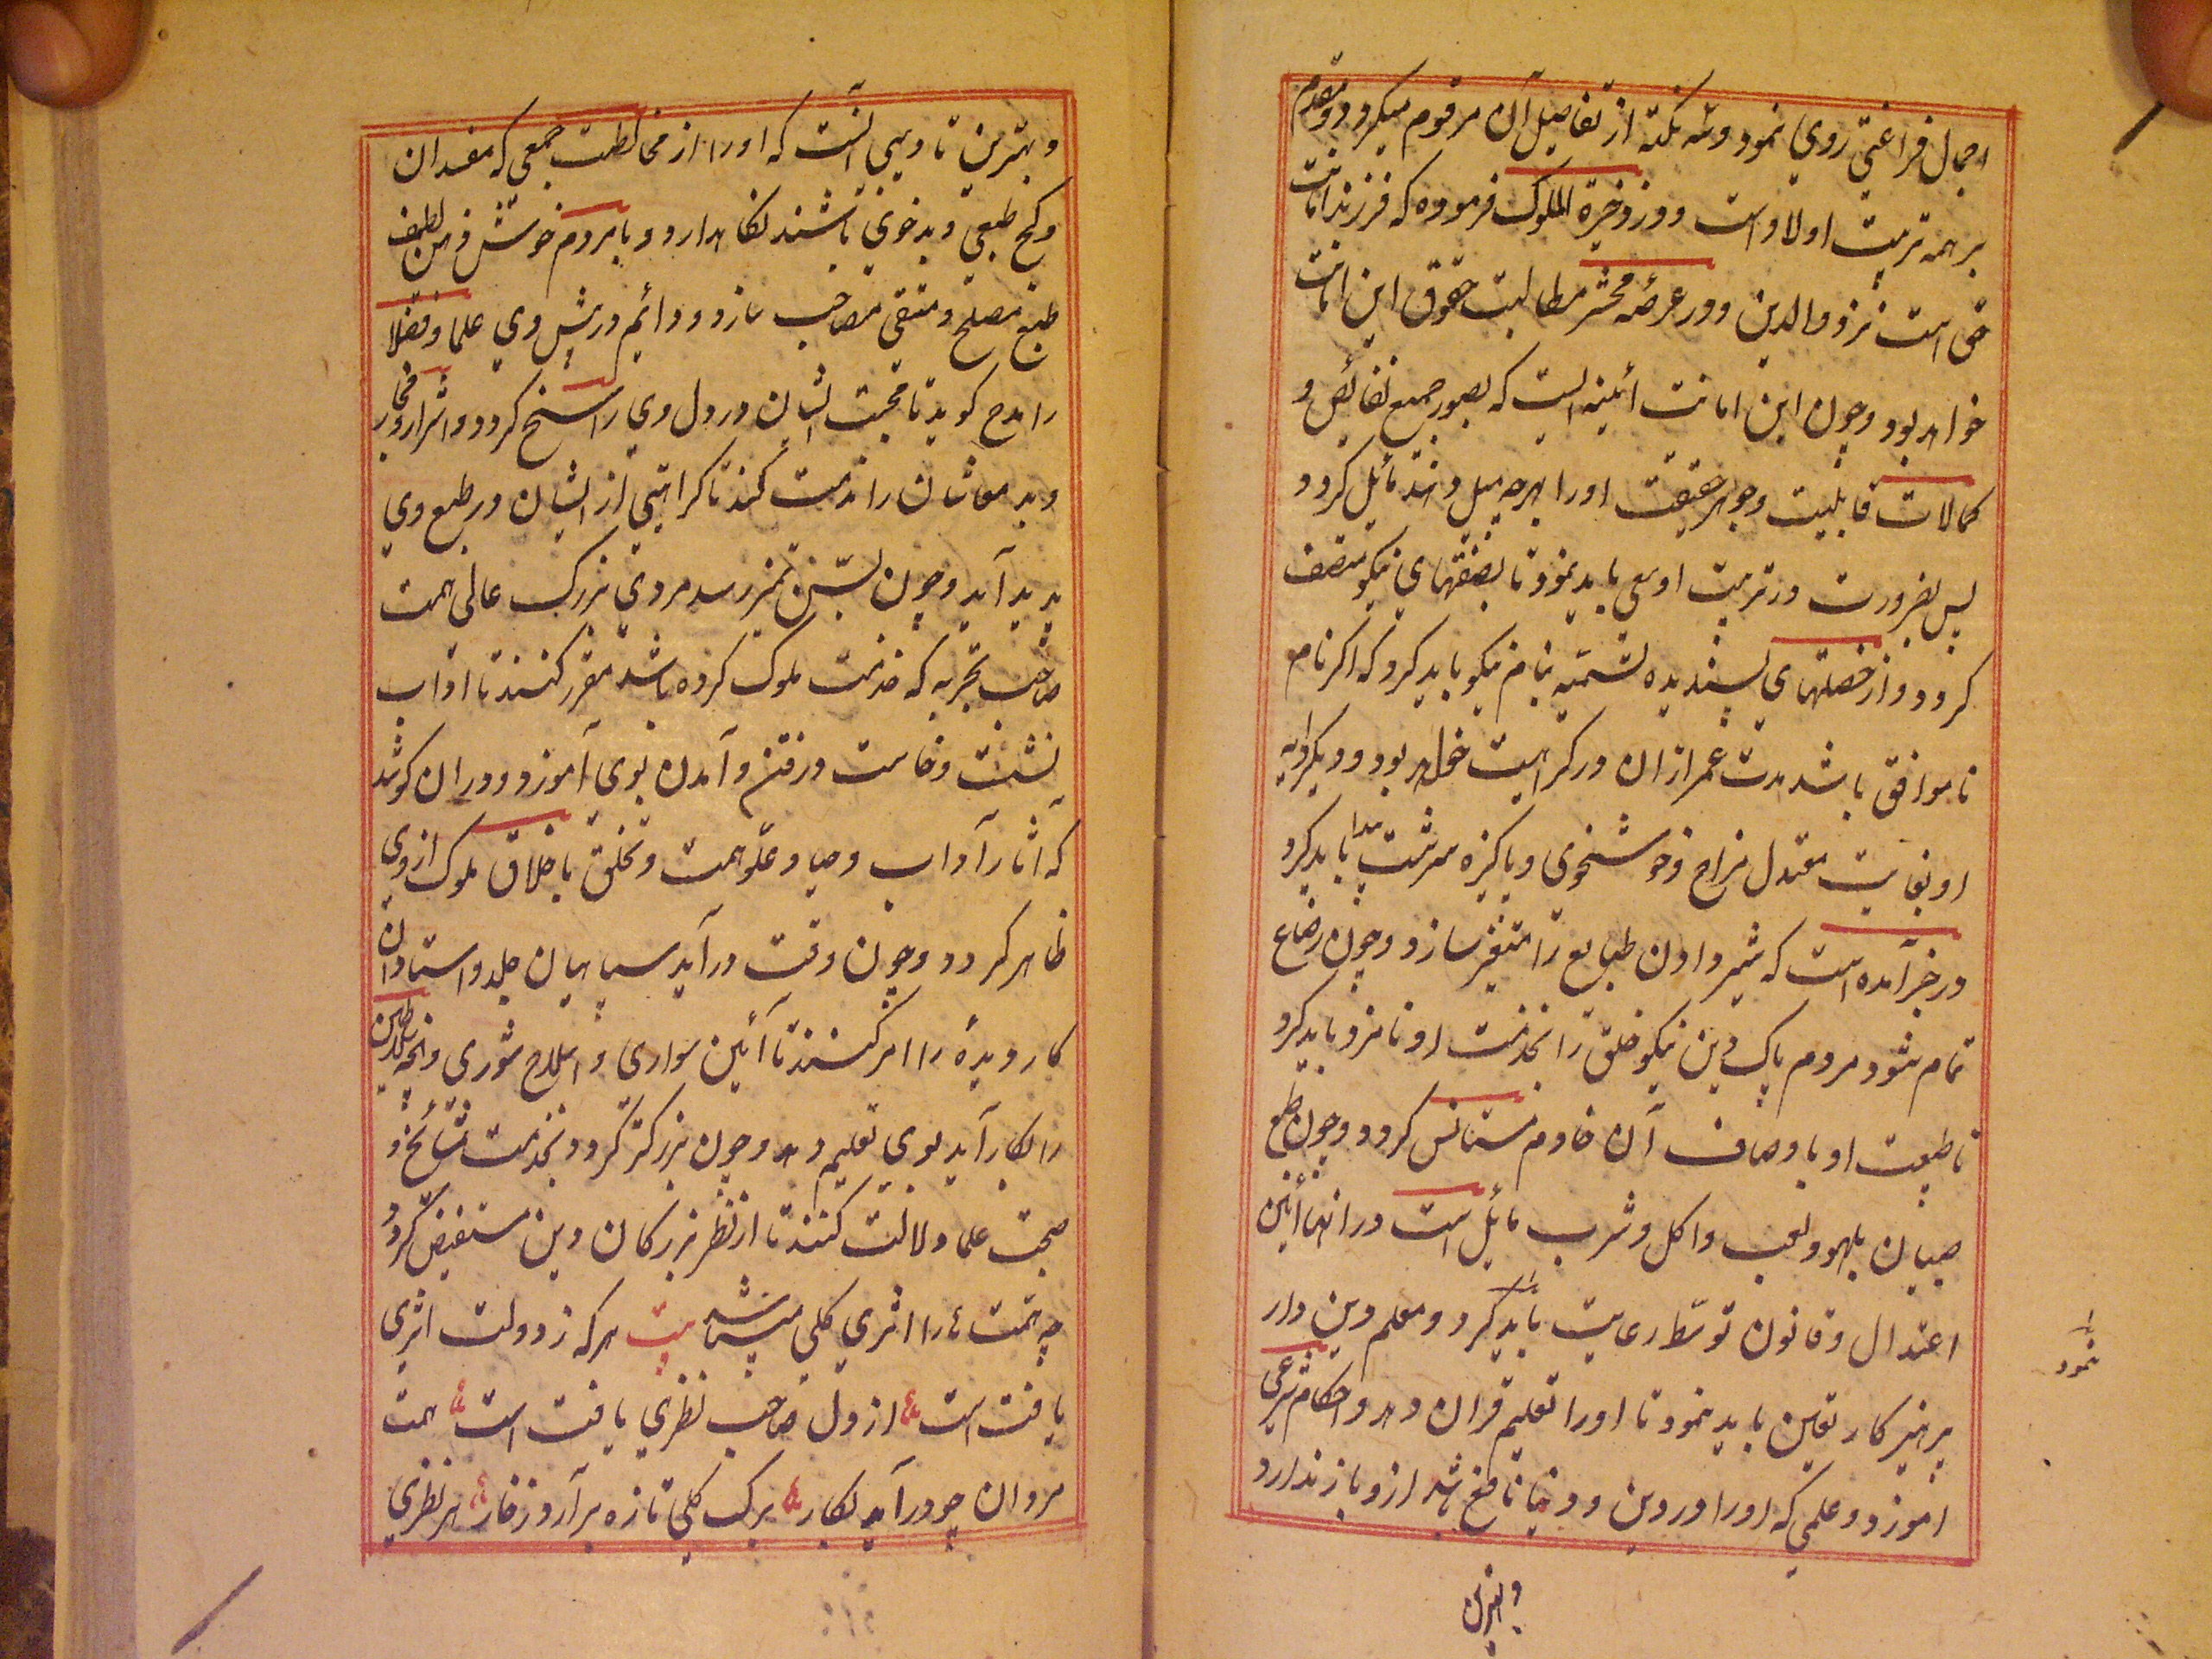 اجمال فراغتی روی نمود و سه نکته از تفاصیل آن مرقوم میکردد و مقدم
بر همه تربیت اولاد است و در ذخیرة الملوک فرموده که فرزند امانت
حق است نزد والدین و در عرصهٔ محشر مطالبت حقوق این امانت
خواهد بود و چون این امانت آئینه ایست که بصور جمیع نقائص و
کمالات قابلیت و جوهر حقیقت او را بهرچه میل دهند مائل کردد
پس بضرورت در تربیت او سعی باید نمود تا بصفتهای نیکو متصف
کردد و از خصلتهای پسندیده تسمیه بنام نیکو باید کرد که اکر نام
ناموافق باشد مدت عمر ازان در کراهیت خواهد بود و دیکر دایه
او بغایت معتدل مزاج و خوشخوی و پاکیزه سرشت پیدا باید کرد
در خبر آمده است که شیر دادن طبایع را متغیر سازد و چون رضاع
تمام شود مردم پاک دین نیکو خلق را بخدمت او نامزد باید کرد
تا طبیعت او باوصاف آن خادم مستانس کردد و چون طبع
صبیان بلهو و لعب و اکل و شرب مائل است در انها آئین
اعتدال و قانون توسّط رعایت باید کرد و معلم دین دار
نمود
پرهیز کار تعین باید نمود تا او را تعلیم قران دهد و احکام شرعی
اموزد و علمی که او را در دین و دنیا نافع باشد ازو باز ندارد
و بهترین
و بهترین تادیبی آنست که او را از مخالطت جمعی که مفسدان
و کج طبعی و بدخوی باشند نکاهدارد و با مردم خوش ذهن لطیف
طبع مصلح و متقی مصاحب سازد و دائم در پیش وی علما و فضلا
را مدح کوید تا محبت ایشان در دل وی راسخ کردد و اشرار و فجار
و بد معاشان را مذمت کند تا کراهتی از ایشان در طبع وی
پدید آید و چون بسنّ تمیز رسد مردی بزرک عالی همت
صاحب تجربه که خدمت ملوک کرده باشد مقرر کنند تا اداب
نشست و خاست و رفتن و آمدن بوی آموزد و دران کوشد
که آثار آداب و حیا و علوّ همت و تخلق باخلاق ملوک از وی
ظاهر کردد و چون وقت در آید سپاهیان جلد و استادان
کار دیده را امر کنند تا آئین سواری و اسلاح شوری و آنچه سلاطین
را بکار آید بوی تعلیم دهد و چون بزرکتر کردد بخدمت مشائخ و
صحبت علما دلالت کنند تا از نظر بزرکان دین مستفیض کردد
چه همت را اثری کلی میباشد بیت هر که ز دولت اثری
یافت است از دل صاحب نظری یافت است همت
مردان چو درآید بکار برک کلی تازه برآرد ز خار هر نظری